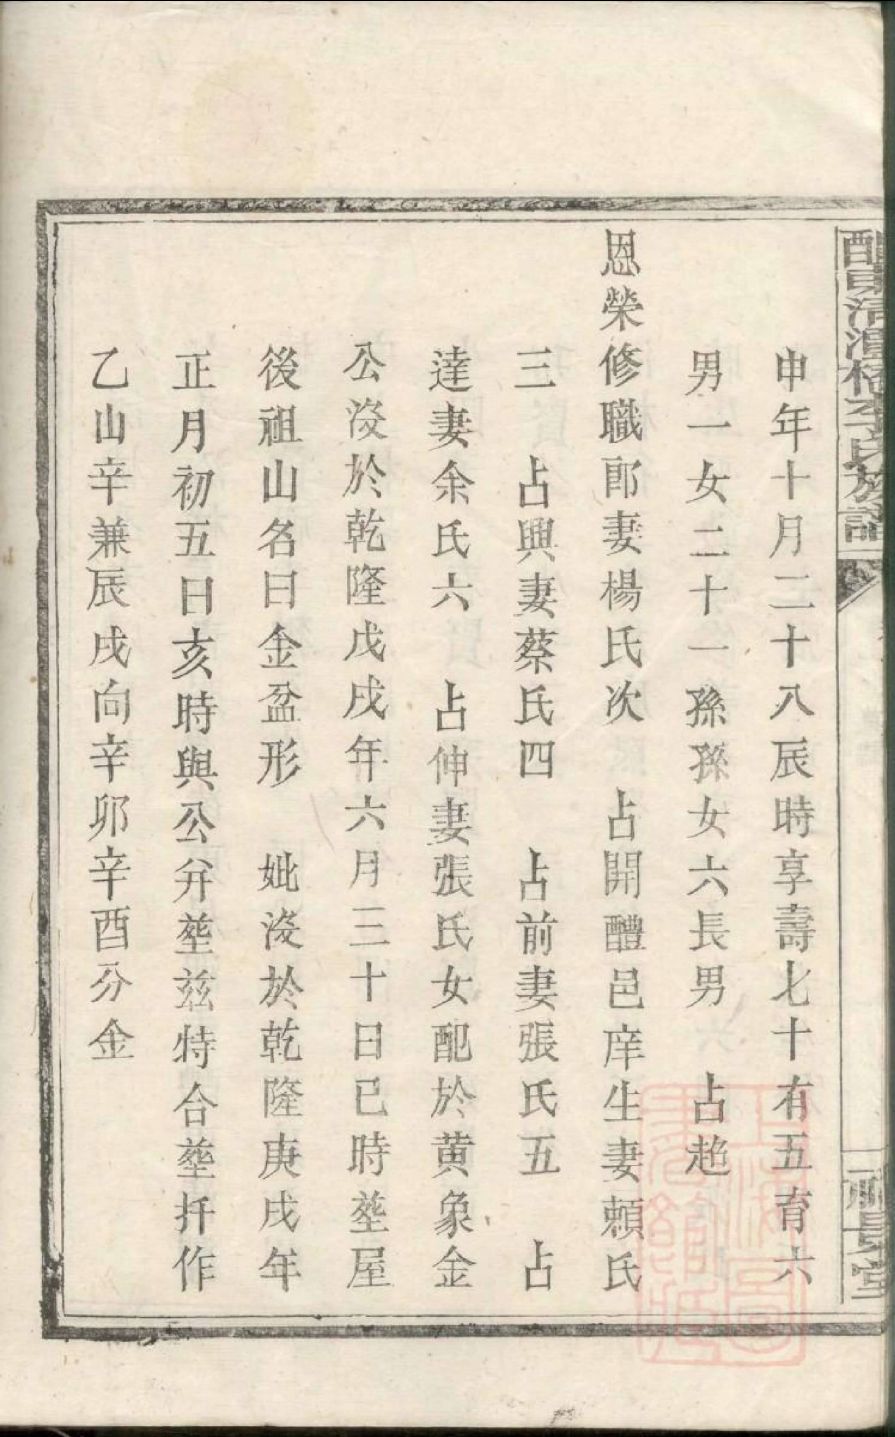 醴東清潭橋李氏族譜
申年十月二十八辰時享壽七十有五育六
男一女二十一孫孫女六長男　占趋
恩榮修職郎妻楊氏次　占開醴邑庠生妻賴氏
三　占興妻蔡氏四　占前妻張氏五　占
達妻余氏六　占伸妻張氏女配於黃象金
公沒於乾隆戊戌年六月三十日巳時塟屋
後祖山名曰金盆形　妣沒於乾隆庚戌年
正月初五日亥時與公幷塟兹特合塟扦作
乙山辛兼辰戌向辛卯辛酉分金